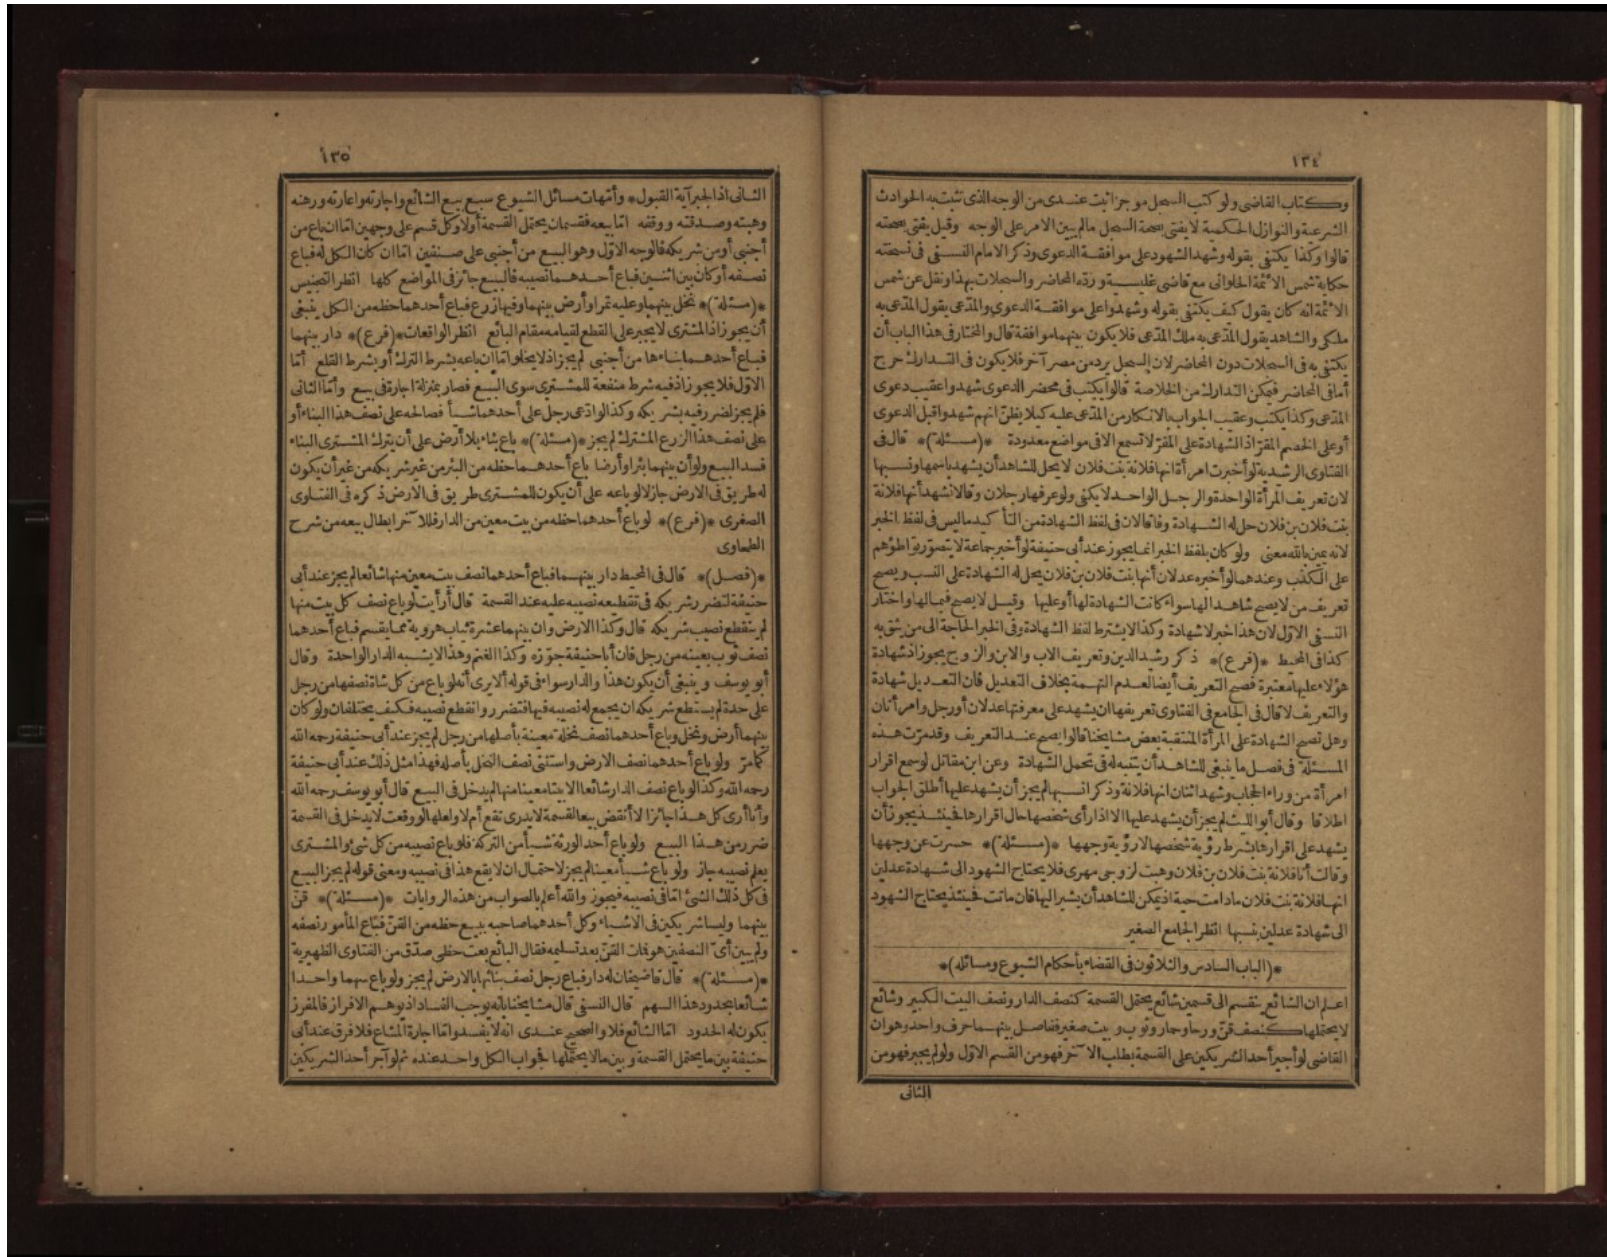 ١٣٤
وكتاب القاضى ولو كتب السجل موجزا ثبت عندى من الوجه الذى تثبت به الحوادث
الشرعية والنوازل الحكمية لا يفتى بصحة السجل ما لم يبين الامر على الوجه وقيل يفتى بصحته
قالوا وكذا يكتفى بقوله وشهد الشهود على موافقة الدعوى وذكر الامام النسفى فى نسخته
حكاية شمس الائمة الحلوانى مع قاضى ورده المحاضر والسجلات بهذا ونقل عن شمس
الائمة انه كان يقول كيف يكتفى بقوله وشهدوا على موافقة الدعوى والمدّعى يقول المدّعى به
ملكى والشاهد يقول المدّعى به ملك المدّعى فلا يكون بينهما موافقة قال والمختار فى هذا الباب أن
يكتفى به فى السجلات دون المحاضر لان السجل يرد من مصر آخر فلا يكون فى التدارك حرج
أما فى المحاضر فيمكن التدارك من الخلاصة قالوا يكتب فى محضر الدعوى شهدوا عقيب دعوى
المدّعى وكذا يكتب وعقيب الجواب بالانكار من المدّعى عليه كيلا يظن انهم شهدوا قبل الدعوى
أو على الخصم المقرّ اذ الشهادة على المقرّ لا تسمع الا فى مواضع معدودة *(مسئلة)* قال فى
الفتاوى الرشدية لو أخبرت امرأة انها فلانة بنت فلان لا يحل للشاهد أن يشهد باسمها ونسبها
لان تعريف المرأة الواحدة والرجل الواحد لا يكفى ولو عرفها رجلان وقالا نشهد أنها فلانة
بنت فلان بن فلان حل له الشهادة وفاقا لان فى لفظ الشهادة من التأكيد ما ليس فى لفظ الخبر
لانه يمين بالله معنى ولو كان بلفظ الخبر انما يجوز عند أبى حنيفة لو أخبر جماعة لا يتصوّر تواطؤهم
على الكذب وعندهما لو أخبره عدلان أنها بنت فلان بن فلان يحل له الشهادة على النسب ويصح
تعريف من لا يصح شاهدا لها سواء كانت الشهادة لها أو عليها وقيل لا يصح فيما لها واختار
النسفى الاوّل لان هذا خبر لا شهادة وكذا لا يشترط لفظ الشهادة وفى الخبر الحاجة الى من يثق به
كذا فى المحيط *(فرع)* ذكر رشيد الدين وتعريف الاب والابن والزوج يجوز اذ شهادة
هؤلاء عليها معتبرة فصح التعريف أيضا لعدم التهمة بخلاف التعديل فان التعديل شهادة
والتعريف لا قال فى الجامع فى الفتاوى تعريفها ان يشهد على معرفتها عدلان أو رجل وامرأتان
وهل تصح الشهادة على المرأة المنتقبة بعض مشايخنا قالوا يصح عند التعريف وقد مرّت هذه
المسئلة فى فصل ما ينبغى للشاهد أن يتنبه له فى تحمل الشهادة وعن ابن مقاتل لو سمع اقرار
امرأة من وراء الحجاب وشهد اثنان انها فلانة وذكر انسبها لم يجز أن يشهد عليها أطلق الجواب
اطلاقا وقال أبو الليث لم يجز أن يشهد عليها الا اذا رأى شخصها حال اقرارها فحينئذ يجوز أن
يشهد على اقرارها بشرط رؤية شخصها لا رؤية وجهها *(مسئلة)* حسرت عن وجهها
وقالت أنا فلانة بنت فلان بن فلان وهبت لزوجى مهرى فلا يحتاج الشهود الى شهادة عدلين
انها فلانة بنت فلان ما دامت حية اذ يمكن للشاهد أن يشير اليها فان ماتت فحينئذ يحتاج الشهود
الى شهادة عدلين بنسبها انظر الجامع الصغير
*(الباب السادس والثلاثون فى القضاء بأحكام الشيوع ومسائله)*
اعلم ان الشائع ينقسم الى قسمين شائع يحتمل القسمة كنصف الدار ونصف البيت الكبير وشائع
لا يحتملها كنصف قنّ ورحا وحمار وثوب وبيت صغير ففاصل بينهما حرف واحد وهو ان
القاضى لو أجبر أحد الشريكين على القسمة بطلب الآخر فهو من القسم الاوّل ولو لم يجبر فهو من
الثانى
١٣٥
الثانى اذ الجبر آية القبول * وأمّهات مسائل الشيوع سبع بيع الشائع واجارته واعارته ورهنه
وهبته وصدقته ووقفه امّا بيعه فقسمان يحتمل القسمة أولا وكل قسم على وجهين امّا ان باع من
أجنبى أو من شريكه فالوجه الاوّل وهو البيع من أجنبى على صنفين امّا ان كان الكل له فباع
نصفه أو كان بين اثنين فباع أحدهما نصيبه فالبيع جائز فى المواضع كلها انظر التجنيس
*(مسئلة)* نخل بينهما وعليه ثمر أو أرض بينهما وفيها زرع فباع أحدهما حظه من الكل ينبغى
أن يجوز اذ المشترى لا يجبر على القطع لقيامه مقام البائع انظر الواقعات *(فرع)* دار بينهما
فباع أحدهما بناءها من أجنبى لم يجز اذ لا يخلو امّا ان باعه بشرط الترك أو بشرط القلع أمّا
الاوّل فلا يجوز اذ فيه شرط منفعة للمشترى سوى البيع فصار بمنزلة اجارة فى بيع وأمّا الثانى
فلم يجز لضرر فيه بشريكه وكذا لو ادّعى رجل على أحدهما شيأ فصالحه على نصف هذا البناء أو
على نصف هذا الزرع المشترك لم يجز *(مسئلة)* باع بناء بلا أرض على أن يترك المشترى البناء
فسد البيع ولو أن بينهما بئرا وأرضا باع أحدهما حظه من البئر من غير شريكه من غير أن يكون
له طريق فى الارض جاز لا لو باعه على أن يكون للمشترى طريق فى الارض ذكره فى الفتاوى
الصغرى *(فرع)* لو باع أحدهما حظه من بيت معين من الدار فللآخر ابطال بيعه من شرح
الطحاوى
*(فصل)* قال فى المحيط دار بينهما فباع أحدهما نصف بيت معين منها شائعا لم يجز عند أبى
حنيفة لتضرر شريكه فى تقطيعه نصيبه عليه عند القسمة قال أرأيت لو باع نصف كل بيت منها
لم ينقطع نصيب شريكه قال وكذا الارض وان بينهما عشرة ثياب هروية مما يقسم فباع أحدهما
نصف ثوب بعينه من رجل فان أبا حنيفة جوّزه وكذا الغنم وهذا لا يشبه الدار الواحدة وقال
أبو يوسف وينبغى أن يكون هذا والدار سواء فى قوله ألا يرى أنه لو باع من كل شاة نصفها من رجل
على حدة لم يستطع شريكه ان يجمع له نصيبه فيها فتضرر وانقطع نصيبه فكيف يختلفان ولو كان
بينهما أرض ونخل وباع أحدهما نصف نخلة معينة بأصلها من رجل لم يجز عند أبى حنيفة رحمه الله
كما مرّ ولو باع أحدهما نصف الارض واستثنى نصف النخل بأصله فهذا مثل ذلك عند أبى حنيفة
رحمه الله وكذا لو باع نصف الدار شائعا الا بيتا معينا منها لم يدخل فى البيع قال أبو يوسف رحمه الله
وأنا أرى كل هذا جائزا لا أنقض بيعا لقسمة لا يدرى تقع أم لا ولعلها لو وقعت لا يدخل فى القسمة
ضرر من هذا البيع ولو باع أحد الورثة شيأ من التركة فلو باع نصيبه من كل شئ والمشترى
يعلم نصيبه جاز ولو باع شيأ معينا لم يجز لاحتمال ان لا يقع هذا فى نصيبه ومعنى قوله لم يجز البيع
فى كل ذلك الشئ امّا فى نصيبه فيجوز والله أعلم بالصواب من هذه الروايات *(مسئلة)* قنّ
بينهما وليسا شريكين فى الاشياء وكل أحدهما صاحبه ببيع حظه من القنّ فباع المأمور نصفه
ولم يبين أىّ النصفين هو فمات القنّ بعد تسليمه فقال البائع بعت حظى صدّق من الفتاوى الظهيرية
*(مسئلة)* قال قاضيخان له دار فباع رجل نصف بنائها بالارض لم يجز ولو باع سهما واحدا
شائعا بحدود هذا السهم قال النسفى قال مشايخنا بانه يوجب الفساد اذ يوهم الافراز فالمفرز
يكون له الحدود امّا الشائع فلا والصحيح عندى انه لا يفسد وامّا اجارة المشاع فلا فرق عند أبى
حنيفة بين ما يحتمل القسمة وبين ما لا يحتملها فجواب الكل واحد عنده ثم لو آجر أحد الشريكين